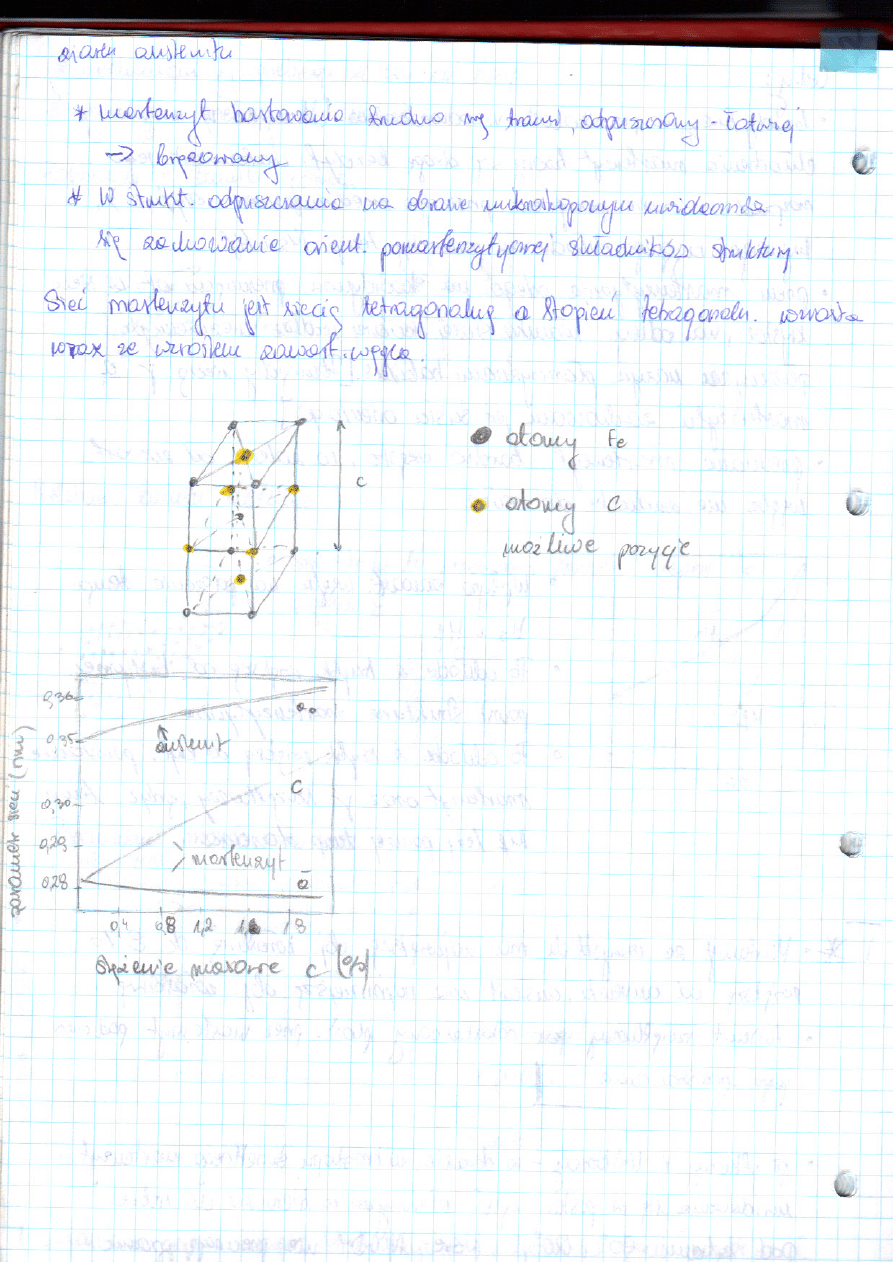 ziaren austenitu
* Martenzyt hartowania trudno się trawi, odpuszczony - łatwiej
→ brązowawy
* W strukt. odpuszczania na obrazie mikroskopowym uwidacznia
się zachowanie orient. pomartenzytycznej składników struktury
Sieć martenzytu jest siecią tetragonalną a stopień tetragonaln. wzrasta
wraz ze wzrostem zawart. węgla.
atomy Fe
c
atomy C
możliwe pozycje
0,36
0,35
austenit
C
0,30
0,29
martenzyt
0,28
a
parametr sieci (nm)
0,4 0,8 1,2 1,6 1,8
stężenie masowe C (%)